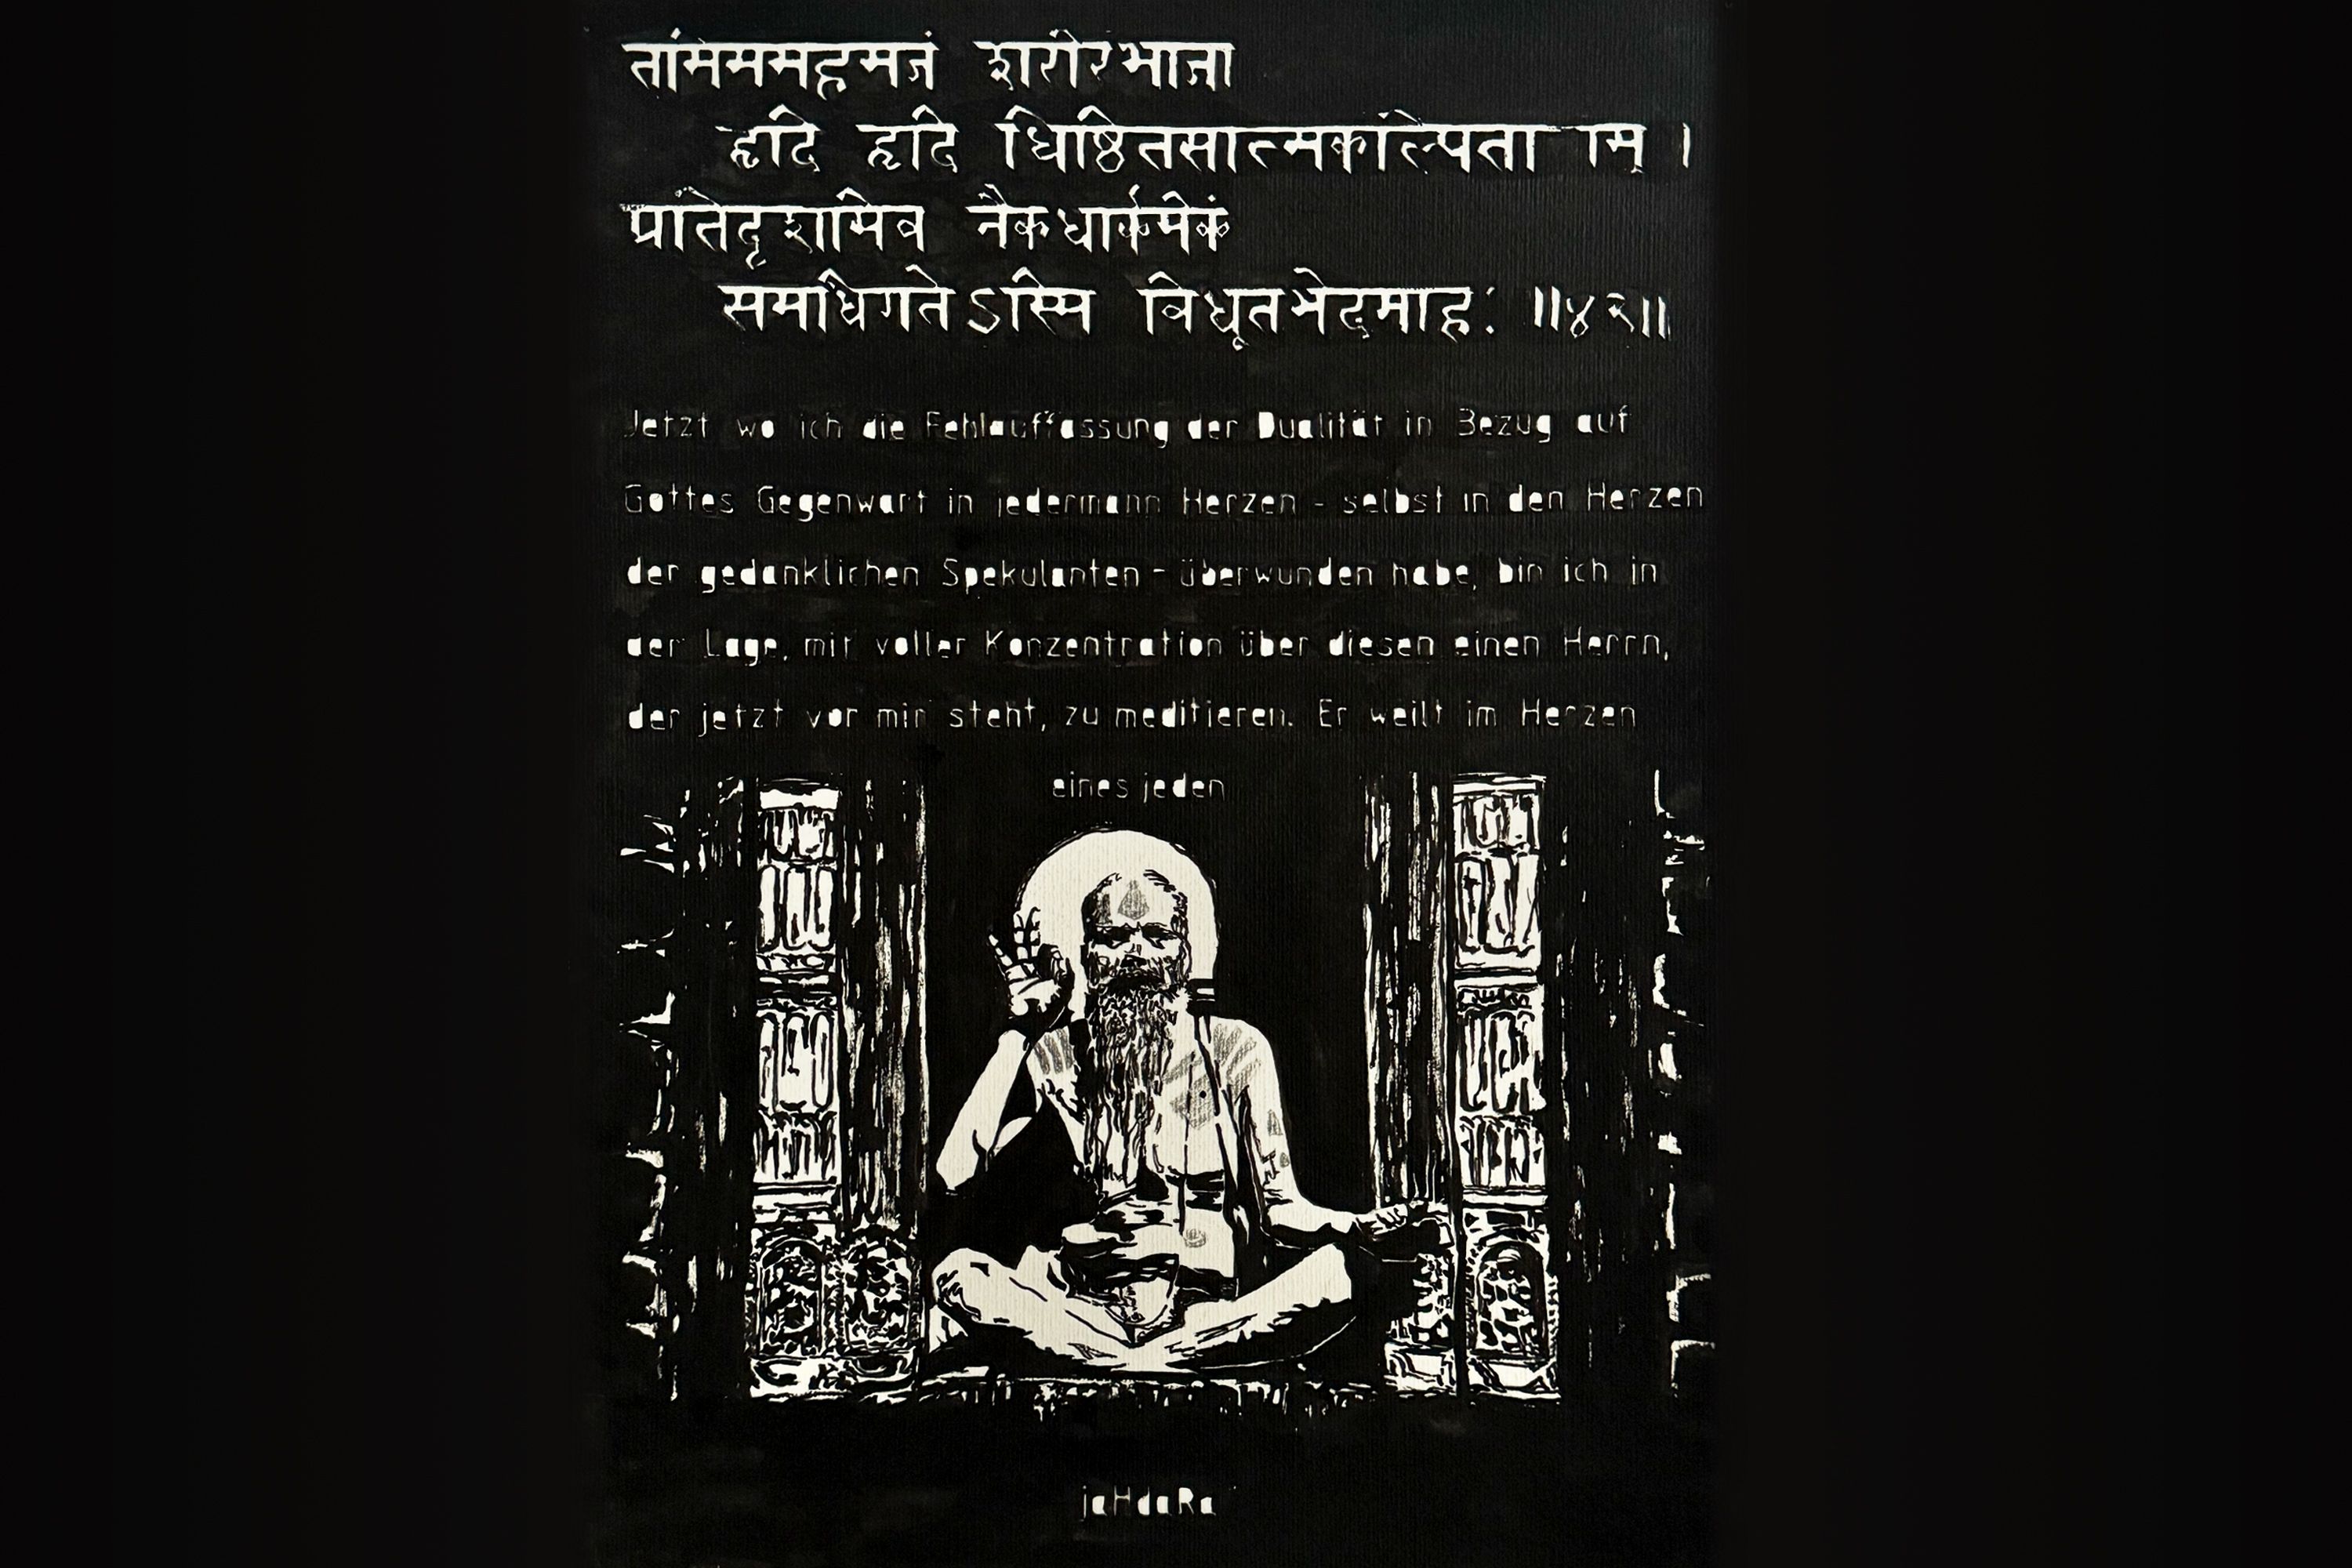 तांमममहमजं शरीरभाजा
हृदि हृदि धिष्ठितसात्मकांल्पता ाम् ।
प्रांतेदृशामिव नैकधार्कमेकं
समधिगतेऽस्मि विधूतभेदमाहः ॥४२॥
Jetzt wo ich die Fehlauffassung der Dualität in Bezug auf
Gottes Gegenwart in jedermann Herzen - selbst in den Herzen
der gedanklichen Spekulanten - überwunden habe, bin ich in
der Lage, mit voller Konzentration über diesen einen Herrn,
der jetzt vor mir steht, zu meditieren. Er weilt im Herzen
eines jeden
jaHdaRa